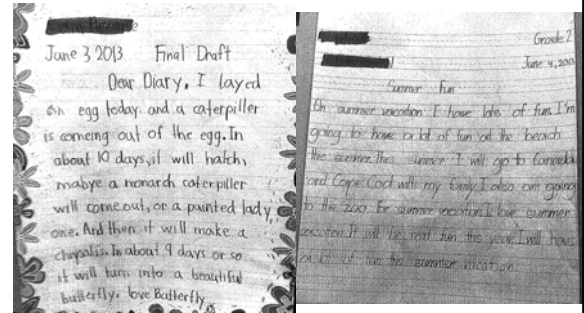 June 3 2013 Final Draft
Dear Diary, I layed
an egg today and a caterpiller
is comeing out of the egg. In
about 10 days, it will hatch,
mabye a monarch caterpiller
will come out, or a painted lady
one. And then it will make a
chrysalis. In about 9 days or so
it will turn into a beautiful
butterfly. love Butterfly
Grade 2
June 4, 200
Summer Fun
On summer vacation I have lots of fun. I'm
going to have a lot of fun at the beach
the summer. This summer I will go to
and Cape Cod with my family. I also am going
to the zoo for summer vacation. I love summer
vacation. It will be real fun this year. I will have
a lot of fun this summer vacation.